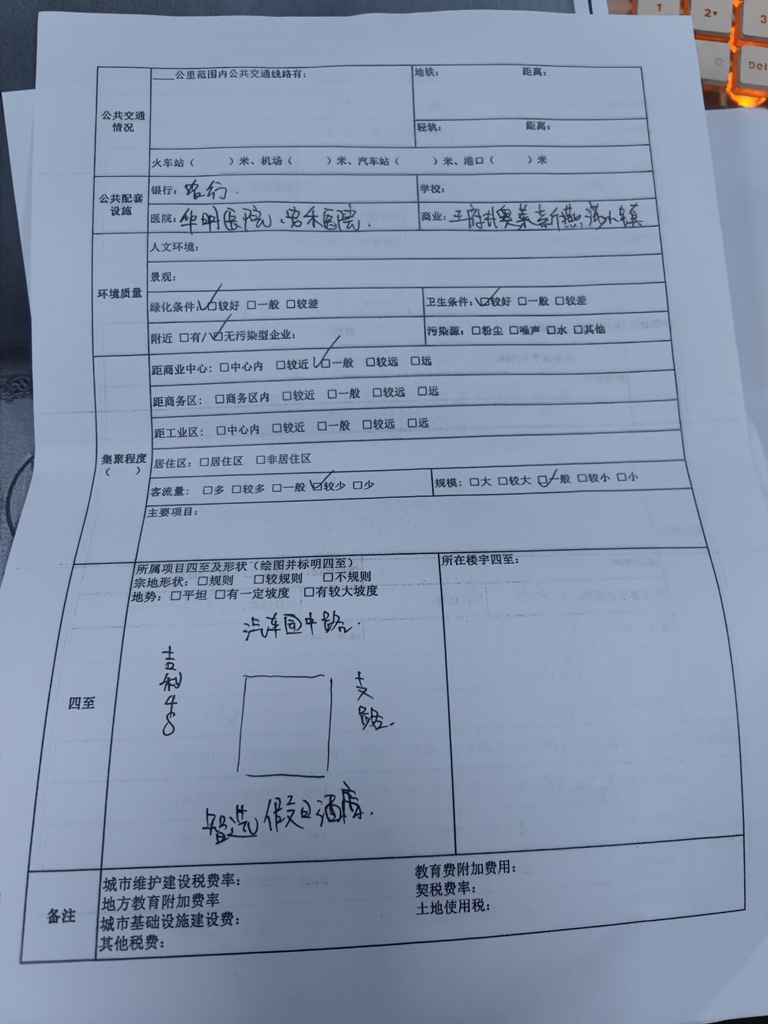 ___公里范围内公共交通线路有: 地铁: 距离:
公共交通
情况
轻轨: 距离:
火车站（ ）米、机场（ ）米、汽车站（ ）米、港口（ ）米
公共配套
设施
银行: 学校:
医院: 华明医院、 医院. 商业: 王府井奥莱新燕莎小镇
人文环境:
景观:
环境质量
绿化条件: ☑较好 □一般 □较差 卫生条件: ☑较好 □一般 □较差
附近 □有/☑无污染型企业: 污染源: □粉尘 □噪声 □水 □其他
距商业中心: □中心内 □较近 ☑一般 □较远 □远
距商务区: □商务区内 □较近 □一般 □较远 □远
距工业区: □中心内 □较近 □一般 □较远 □远
集聚程度
（ ）
居住区: □居住区 □非居住区
客流量: □多 □较多 □一般 ☑较少 □少 规模: □大 □较大 ☑一般 □较小 □小
主要项目:
所属项目四至及形状（绘图并标明四至） 所在楼宇四至:
宗地形状: □规则 □较规则 □不规则
地势: □平坦 □有一定坡度 □有较大坡度
汽车园中路.
吉利4S
支路.
四至
智选假日酒店.
备注
城市维护建设税费率: 教育费附加费用:
地方教育附加费率 契税费率:
城市基础设施建设费: 土地使用税:
其他税费:
1
2
3
Del